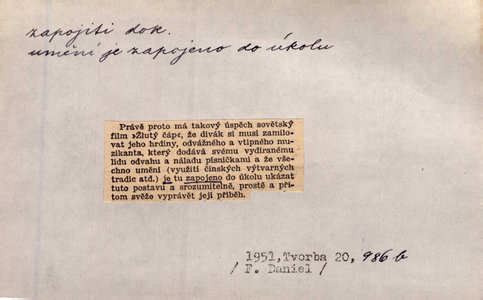 zapojiti dok.
umění je zapojeno do úkolu
Právě proto má takový úspěch sovětský
film »Žlutý čáp«, že divák si musí zamilo-
vat jeho hrdiny, odvážného a vtipného mu-
zikanta, který dodává svému vydíranému
lidu odvahu a náladu písničkami a že vše-
chno umění (využití čínských výtvarných
tradic atd.) je tu zapojeno do úkolu ukázat
tuto postavu a srozumitelně, prostě a při-
tom svěže vyprávět její příběh.
1951, Tvorba 20, 986 b
/ F. Daniel /